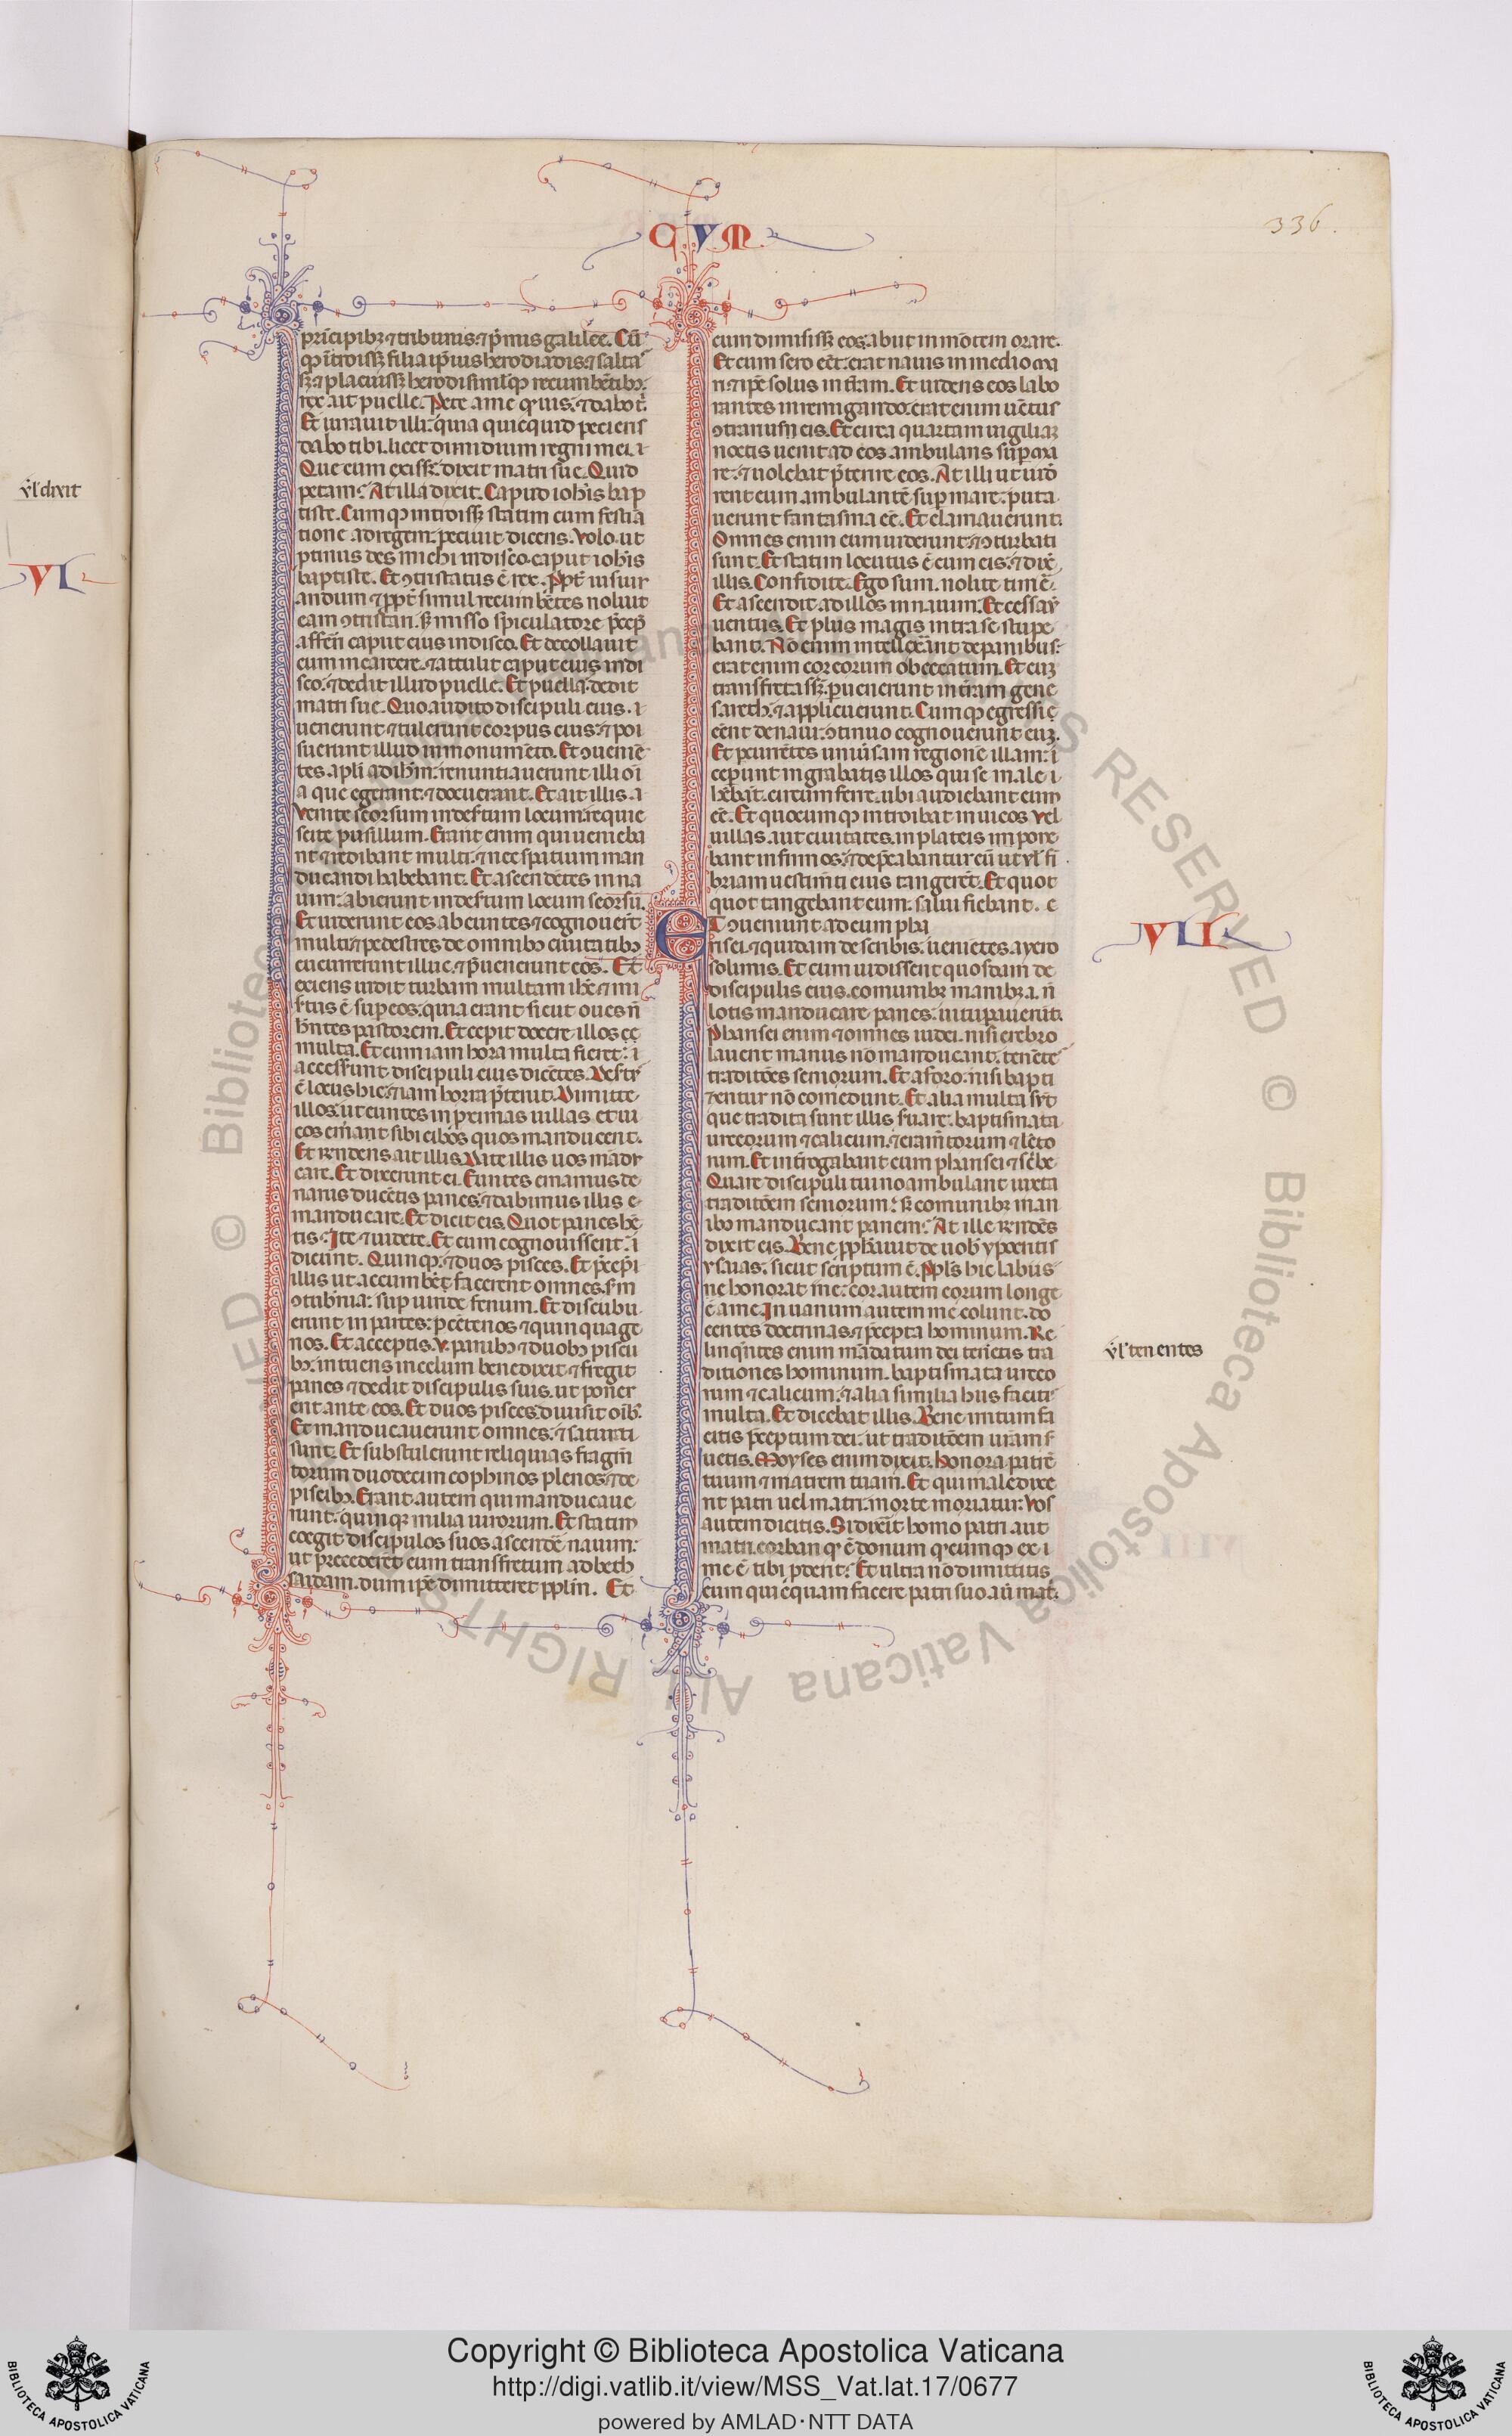 336.
QVM
vl dixit
VI
principibꝫ ⁊ tribunis. ⁊ pͥmis galilee. Cū
qꝫ ītroissꝫ filia ipͥius herodiadis. ⁊ salta
sꝫ ⁊ placuissꝫ herodi simulqꝫ recumbētibꝫ.
rex ait puelle. Pete a me qͦ uis. ⁊ dabo tͥ.
Et iurauit illi. quia quicquid pecieris
dabo tibi. licet dimidium regni mei. ⁊
Que cum exissꝫ. dixit matri sue. Quid
petam? At illa dixit. Capud ioh̄is bap
tiste. Cumqꝫ introissꝫ statim cum festia
tione ad regem: peciuit dicens. Volo. ut
ptinus des michi in disco. caput ioh̄is
baptiste. Et ꝯtristatus ē rex. Ppt̄ iusiur
andum ⁊ ppt̄ simul recumbētes noluit
eam ꝯtristari. sꝫ misso spiculatore p̄cep̄
afferri caput eius in disco. Et decollauit
eum in carcere. ⁊ attulit caput eius in di
sco. ⁊ dedit illud puelle. Et puella. dedit
matri sue. Quo audito discipuli eius. ⁊
uenerunt ⁊ tulerunt corpus eius. ⁊ poi
suerunt illud in monumēto. Et ꝯuenīe
tes apl̄i ad ih̄m: renuntiauerunt illi oī
a que egerant. ⁊ docuerant. Et ait illis. a
Venite seorsum in desertum locum. requie
scite pusillum. Erant enim qui uenieba
nt ⁊ redibant multi. ⁊ nec spatium man
ducandi habebant. Et ascendētes in na
uim: abierunt in desertum locum seorsū.
Et uiderunt eos abeuntes ⁊ cognouer̄t
multi ⁊ pedestres de omnibꝫ ciuitatibꝫ
cucurrerunt illuc. ⁊ p̄uenerunt eos. Et
exiens uidit turbam multam ih̄c ⁊ mi
s̄tus ē sup eos. quia erant sicut oues n̄
h̄ntes pastorem. Et cepit docere illos ee
multa. Et cum iam hora multa fieret: i
accesser̄unt discipuli eius dicētes. Desert̄
ē locus hic. ⁊ iam hora p̄teriit. Dimitte
illos. ut euntes in proximas uillas. et ui
cos emant sibi cibos quos manducent.
Et r̄ndens ait illis. Date illis uos mādr
care. Et dixerunt ei. Euntes emamus de
nariis ducētis panes. ⁊ dabimus illis e
manducare. Et dicit eis. Quot panes hē
tis. Ite ⁊ uidete. Et cum cognouissent: i
dicunt. Quinqꝫ. ⁊ duos pisces. Et p̄cepi
illis ut accumbēt facerent omnes. s̄m
ꝯtub̄nia: sup uiride fenum. Et discubu
erunt in partes: p cētenos ⁊ quinquage
nos. Et acceptis. v. panibꝫ ⁊ duobꝫ pisci
bꝫ: intuens in celum benedixit ⁊ fregit
panes ⁊ dedit discipulis suis. ut poner
ent ante eos. Et duos pisces diuisit oībꝫ.
Et manducauerunt omnes. ⁊ saturati
sunt. Et substulerunt reliquias fragm̄
torum duodecim cophinos plenos. ⁊ de
piscibꝫ. Erant autem qui manducaue
runt. quinqꝫ milia uirorum. Et statim
coegit discipulos suos ascendē nauim:
ut precederēt eum transfretum ad beth
saidam. dum ip̄e dimitteret ppl̄m. Et
cum dimisissꝫ eos. abiit in mōtem orare.
Et cum sero eēt. erat nauis in medio ma
ri. ⁊ ip̄e solus in t̄ram. Et uidens eos labo
rantes in remigando. erat enim uētus
ꝯtrarius eis. Et circa quartam uigiliaꝫ
noctis uenit ad eos ambulans sup ma
re. ⁊ uolebat p̄terire eos. At illi ut uidē
rent eum ambulantē sup mare. puta
uerunt fantasma eē. Et clamauerunt.
Omnes enim eum uiderunt. ⁊ ꝯturbati
sunt. Et statim locutus ē cum eis. ⁊ dix̄
illis. Confidite. Ego sum. nolite timē.
Et ascendit ad illos in nauim. Et cessaū
uentus. Et plus magis intra se stupe
bant. Nō enim intellexerant de panibus:
erat enim cor eorum obcecatum. Et cuꝫ
transfretassꝫ. puenerunt in t̄ram gene
sareth. ⁊ applicuerunt. Cumqꝫ egressi e
eēnt de naui. ꝯtinuo cognouerunt euꝫ.
Et pcurrētes uniūsam regionē illam: i
ceperunt in grabatis illos qui se male i
hēbāt. circum ferre. ubi audiebant eum
eē. Et quocumqꝫ introibat in uicos uel
uillas. aut ciuitates. in plateis impone
bant infirmos. ⁊ dep̄cabantur eū ut ul̄ fi
briam uestim̄ti eius tangerēt. Et quot
quot tangebant eum: salui fiebant. e
ET ꝯueniunt ad eum pha
VII
risei. ⁊ quidam de scribis. uenietes a yero
solimis. Et cum uidissent quosdam de
discipulis eius. comunibꝫ manibꝫ. i. n̄
lotis manducare panes: uitupauerūt.
Pharisei enim ⁊ omnes iudei. nisi crebro
lauent manus nō manducant. tenēte
traditōes seniorum. Et a foro: nisi bapti
ꝫentur nō comedunt. Et alia multa sūt
que tradita sunt illis s̄uare. baptismata
urceorum ⁊ calicum. ⁊ eram̄torum ⁊ lēto
rum. Et int̄rogabant eum pharisei ⁊ sc̄be
Quare discipuli tui no ambulant iuxta
traditōem seniorum: sꝫ comunibꝫ man
ibꝫ manducant panem? At ille r̄ndēs
dixit eis. Bene pph̄auit de uob̄ ypocritis
ysaias. sicut scriptum ē. Ppl̄s hic labiis
me honorat me: cor autem eorum longe
ē a me. In uanum autem me colunt. do
centes doctrinas. ⁊ p̄cepta hominum. Re
linqn̄tes enim mādatum dei tenetis tra
vl tenentes
ditiones hominum. baptismata urceo
rum ⁊ calicum. ⁊ alia similia his faciti
multa. Et dicebat illis. Bene irritum fa
citis p̄ceptum dei. ut traditōem uram s
uetis. Moyses enim dixit. honora patrē
tuum ⁊ matrem tuam. Et qui maledixe
rit patri uel matri. morte moriatur. Vos
autem dicitis. Si dixerit homo patri aut
matri. corban qͦ ē donum qͦ cumqꝫ ex i
me ē tibi pderit: Et ultra nō dimittitis
eum quicquam facere patri suo. aū mat̄.